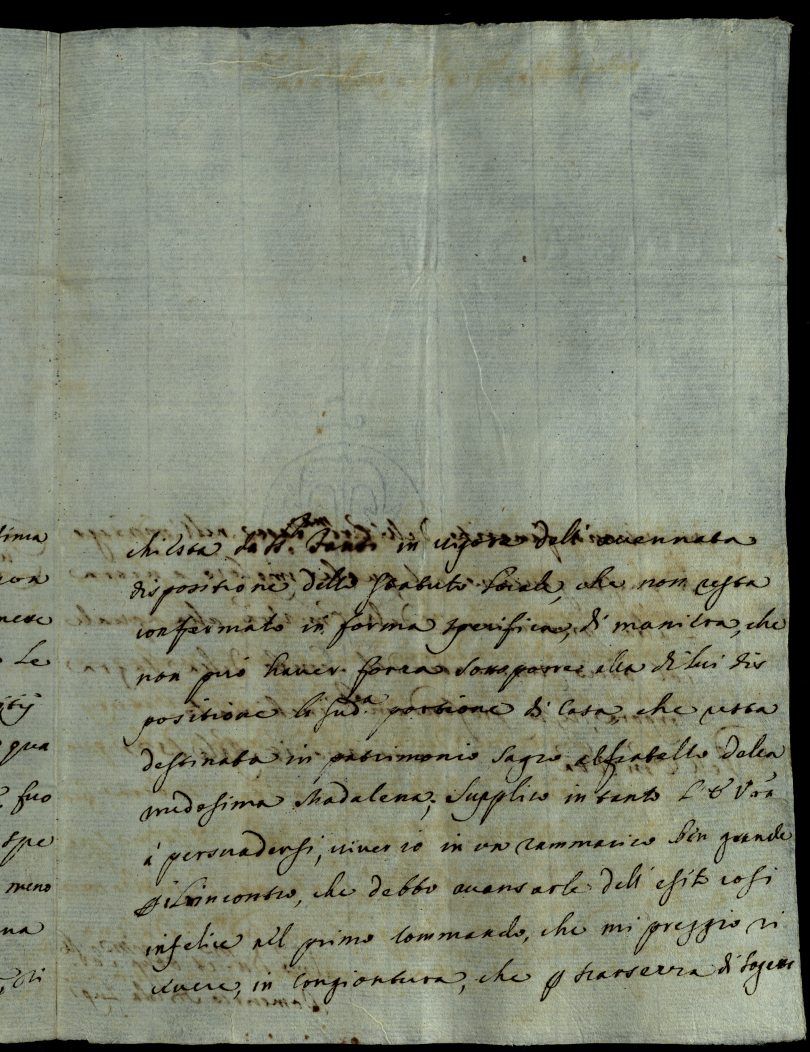 tima
non
nere
Le
ità
qua
fuo
spe
meno
na
di
chiesta da in vigore dell' accennata
dispositione dello statuto locale, che non resta
confermato in forma specifica, di maniera, che
non può haver forza sottoporre alla di lui dis
positione la sud.ª portione di Casa, che resta
destinata in patrimonio sagro al fratello della
medesima Madalena; Supplico intanto V.ra
à persuadersi, viver io in un rammarico ben grande
l'incontro, che debbo avansarle dell' esito così
infelice nel primo Commando, che mi preggio ri
cevere, in congiontura, che p scarsezza di sogetti